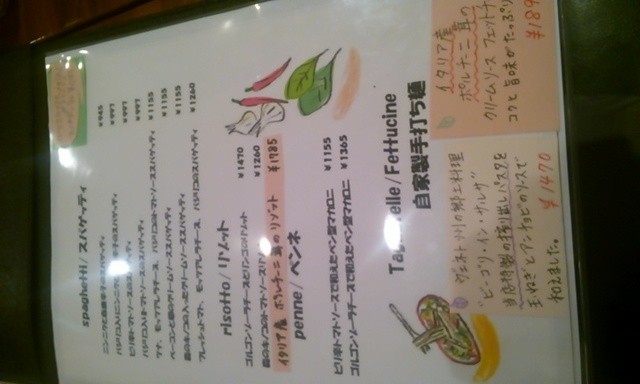 spaghetti/スパゲッティ
ニンニクと唐辛子のスパゲッティ ¥945
バジリコ入りニンニクと唐辛子のスパゲッティ ¥997
ピリ辛トマトソースのスパゲッティ ¥997
バジリコ入りトマトソースのスパゲッティ ¥997
ツナ、モッツァレラチーズ、バジリコのトマトソーススパゲッティ ¥1155
ベーコンと卵のクリームソーススパゲッティ ¥1155
森のキノコの入ったクリームソーススパゲッティ ¥1155
フレッシュトマト、モッツァレラチーズ、バジリコのスパゲッティ ¥1260
risotto/リゾット
ゴルゴンゾーラチーズとリンゴのリゾット ¥1470
森のキノコのトマトソースリゾット ¥1260
イタリア産 ポルチーニ茸のリゾット ¥1785
penne/ペンネ
ピリ辛トマトソースで和えたペン型マカロニ ¥1155
ゴルゴンゾーラチーズで和えたペン型マカロニ ¥1365
Tag elle/Fettucine
自家製手打ち麺
イタリア産
ポルチーニ茸の
クリームソース フェットチ
コクと旨味がたっぷり
¥189
ヴェネト州の郷土料理
"ビーゴリ・イン・サルサ"
当店特製の押し出しパスタを
玉ねぎとアンチョビのソースで
和えました。
¥1470